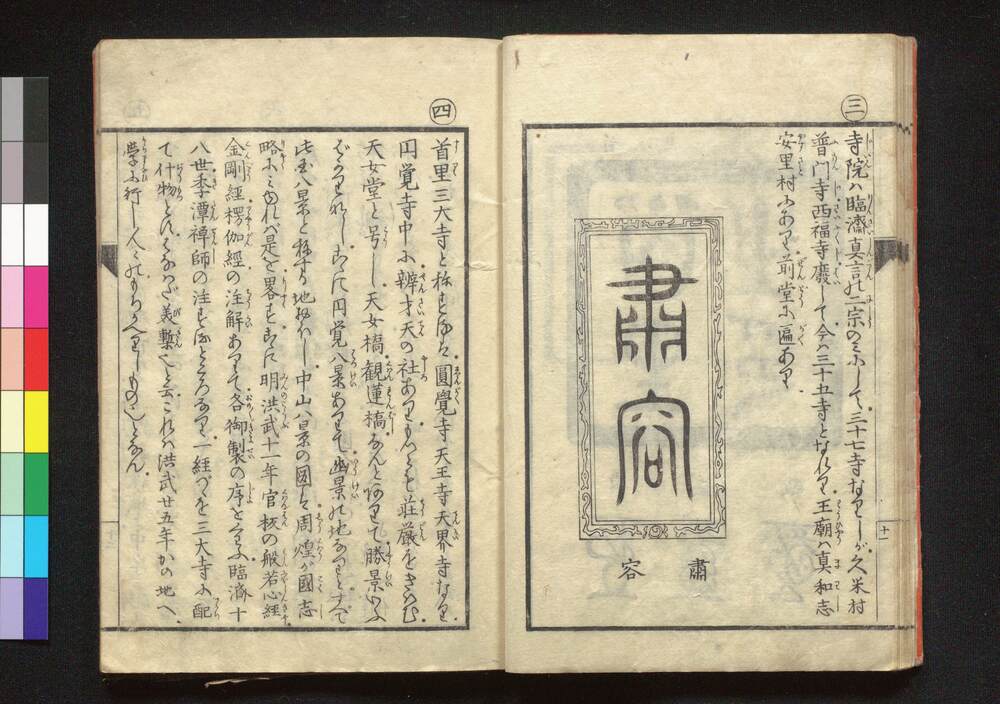 三
寺院ハ臨濟真言の二宗のミにして三十七寺なりしが久米村
普門寺西福寺廢して今ハ三十五寺となれり王廟ハ真和志
安里村にあり前堂に遍あり
肅容
肅容
十
四
首里三大寺と称するは圓覺寺天王寺天界寺なり
円覚寺中に辨才天の社ありもつとも荘厳をきはむ
天女堂と号し天女橋観蓮橋なんとありて勝景いふ
ばかりなしこゝに円覚八景ありて幽景の地なりとすべて
此国八景と称する地おほし中山八景の図は周煌が國志
略にミゆれバ是を畧すこゝに明洪武十一年官板の般若心經
金剛經楞伽經の注解ありて各御製の序をくわふ臨濟十
八世季潭禅師の注するところなり一經づゝを三大寺に配
て什物とす
これハ洪武廿五年かの地へ
学に行し人の
ものならん